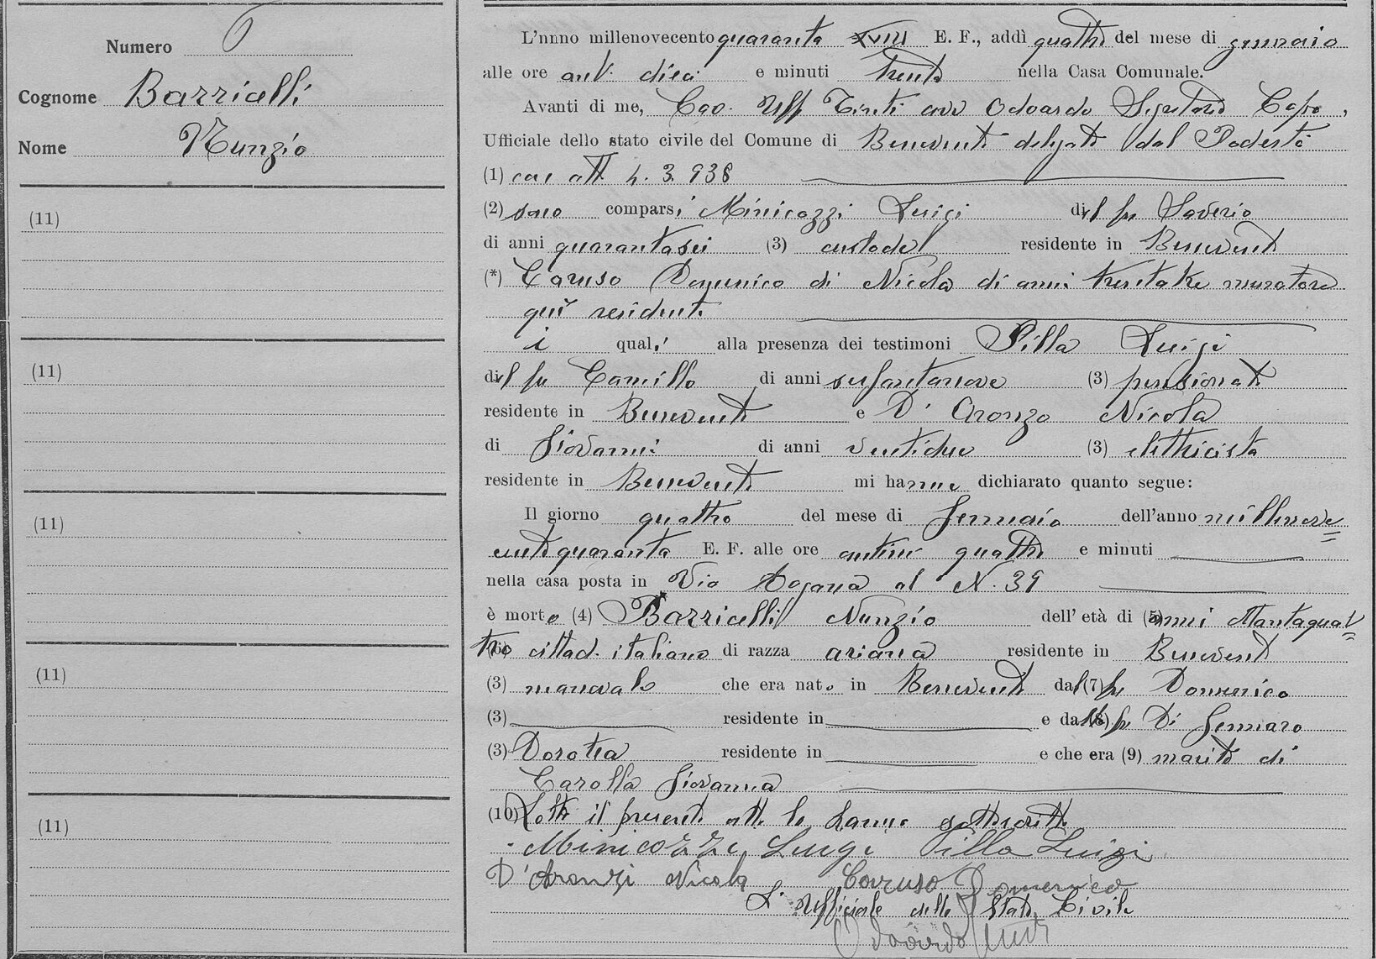 Numero 6
Cognome Barricelli
Nome Nunzio
(11)
(11)
(11)
(11)
(11)
L'anno millenovecento quaranta XVIII E. F., addì quattro del mese di gennaio
alle ore ant. dieci e minuti trenta nella Casa Comunale.
Avanti di me, Cav. Uff Tinti avv Odoardo Segretario Capo,
Ufficiale dello stato civile del Comune di Benevento delegato dal Podestà
(1) con att. 4. 3. 938
(2) sono comparsi Minicozzi Luigi del fu Saverio
di anni quarantasei (3) custode residente in Benevento
(*) Caruso Domenico di Nicola di anni trentatre muratore
qui residenti
i quali alla presenza dei testimoni Pilla Luigi
del fu Camillo di anni sessantanove (3) pensionato
residente in Benevento e D' Aronzo Nicola
di Giovanni di anni ventidue (3) elettricista
residente in Benevento mi hanno dichiarato quanto segue:
Il giorno quattro del mese di Gennaio dell'anno millenove
centoquaranta E. F. alle ore antim quattro e minuti
nella casa posta in Via Dogana al N. 39
è morto (4) Barricelli Nunzio dell'età di (5) anni ttantaquat
tro cittad. italiano di razza ariana residente in Benevento
(3) manovale che era nato in Benevento dal (7) fu Domenico
(3) residente in e dalla (8) fu Di Gennaro
(3) Dorotea residente in e che era (9) marito di
Carolla Giovanna
(10) Letto il presente atto lo hanno sottoscritto
Minicozzi Luigi Pilla Luigi
D'Aronzi Nicola Caruso Domenico
L' Ufficiale dello Stato Civile
Odoardo Tinti